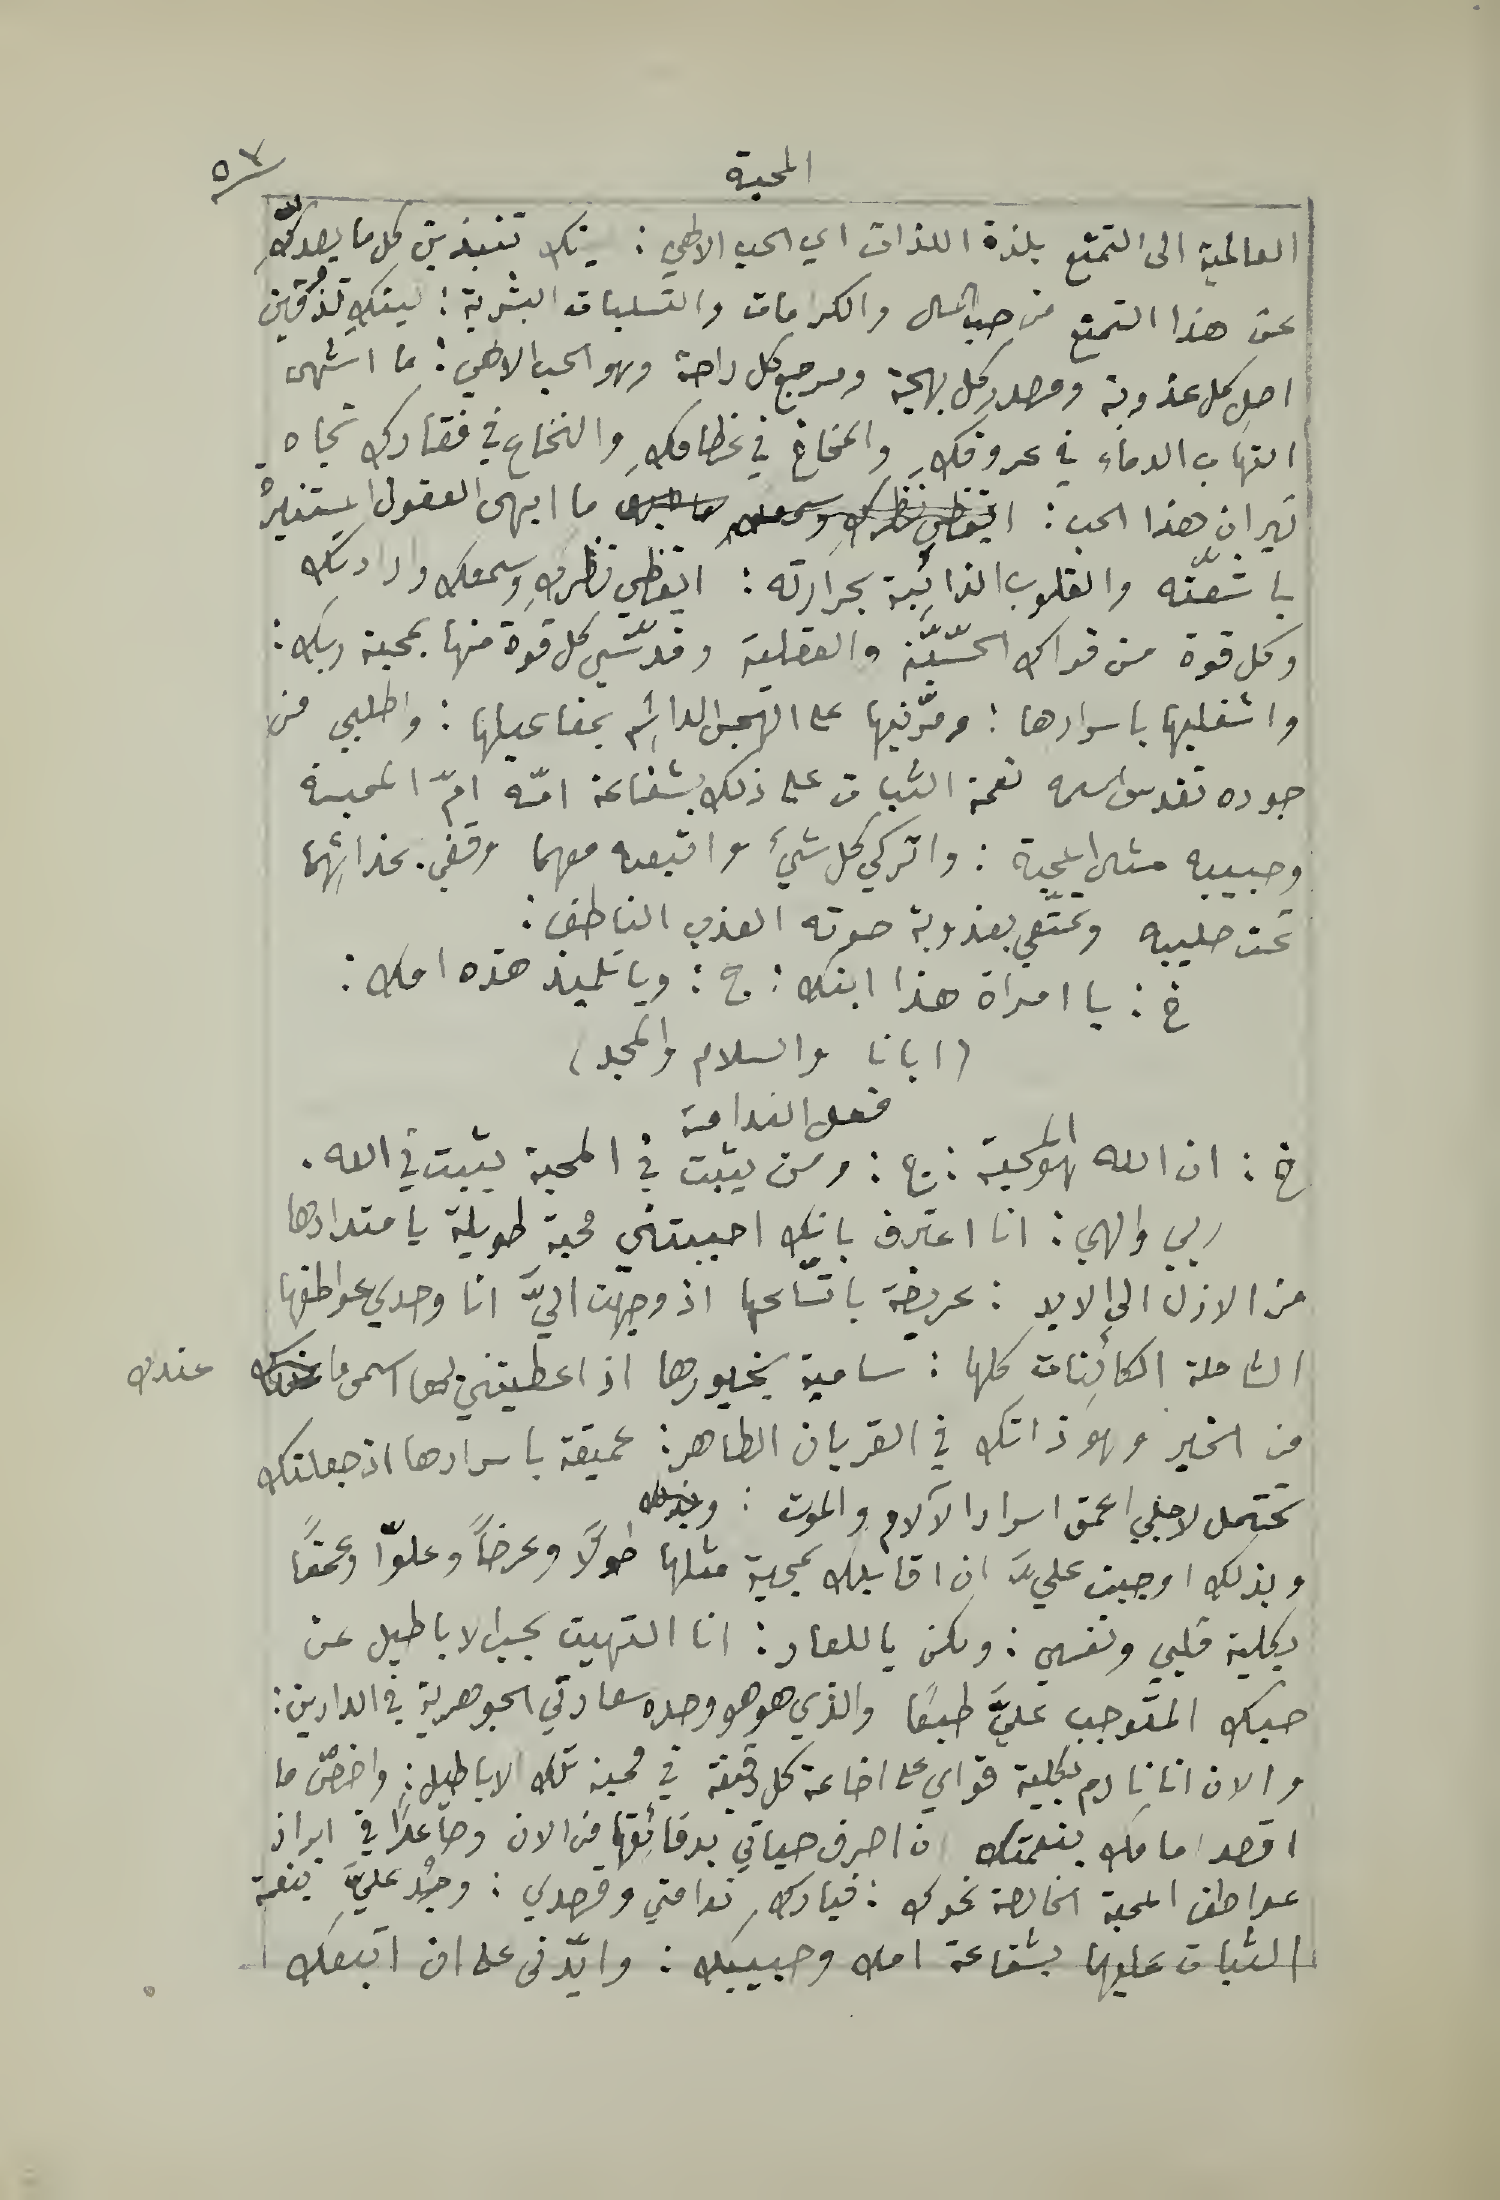 المحبة
٥٧
العالمية الى التمتع بلذة اللذات اي الحب الالهي : ليتك تنبذين كل ما يصدكِ
عن هذا التمتع من حب المال والكرامات والتسليات البشرية : ليتكِ تذُقين
اصل كل عذوبة ومصدر كل بهجة ومرجع كل راحة وهو الحب الالهي : ما اشهى
التهاب الدماء في عروقكِ والمخاخ في عظامكِ والنخاع في فقارك تجاه
نيران هذا الحب : ايقظي نظركِ وسمعكِ ما ابهى العقول المستنيرة
باشعّته والقلوب الذائبة بحرارته : ايقظي نظركِ وسمعك وارادتك
وكل قوة من قواك الحسّيَّة والعقلية وقدّسي كل قوة منها بمحبة ربك :
واشغليها باسرارها : ومرّنيها على الهجس الدائم بمفاعيلها : واطلبي من
جوده تقدس اسمه نعمة الثبات على ذلك بشفاعة امّه امّ المحبة
وحبيبه مثال المحبة : واتركي كل شيء واتبعيه معهما وقفي بحذائهما
تحت صليبه وتمتّعي بعذوبة صوته العذب الناطق :
خ : يا امراة هذا ابنك : ج : ويا تلميذ هذه امك :
(ابانا والسلام والمجد)
فعل الندامة
خ : ان الله هو المحبة : ج : ومن يثبت في المحبة يثبت في الله .
ربي والهي : انا اعترف بانك احببتني محبة طويلة بامتدادها
من الازل الى الابد : عريضة باتّساعها اذ وجهّت اليَّ انا وحدي عواطفها
الشاملة الكائنات كلها : سامية بخيورها اذ اعطيتني بها اسمى ما عندك
من الخير وهو ذاتك في القربان الطاهر : عميقة باسرارها اذ جعلتك
تحتمل لاجلي اعمق اسرار الآلام والموت : وبذلك
وبذلك اوجبت عليَّ ان اقابلك بمحبة مثلها طولًا وعرضاً وعلوّاً وعمقًا
بكلية قلبي ونفسي : ولكن ياللعار : انا التهيت بحب الاباطيل عن
حبك المتوجب عليَّ طبعًا والذي هو هو وحده سعادتي الجوهرية في الدارين :
والان انا نادم بكلية قواي على اضاعة كل دقيقة في محبة تلك الاباطيل : واخصّ ما
اقصد امامك بنعمتك ان اصرف حياتي بدقائقها من الان وصاعدًا في ابراز
عواطف المحبة الخالصة نحوك : فبارك ندامتي وقصدي : وجُد عليَّ بنعمة
الثبات عليها بشفاعة امك وحبيبك : وايّدني على ان اتبعك